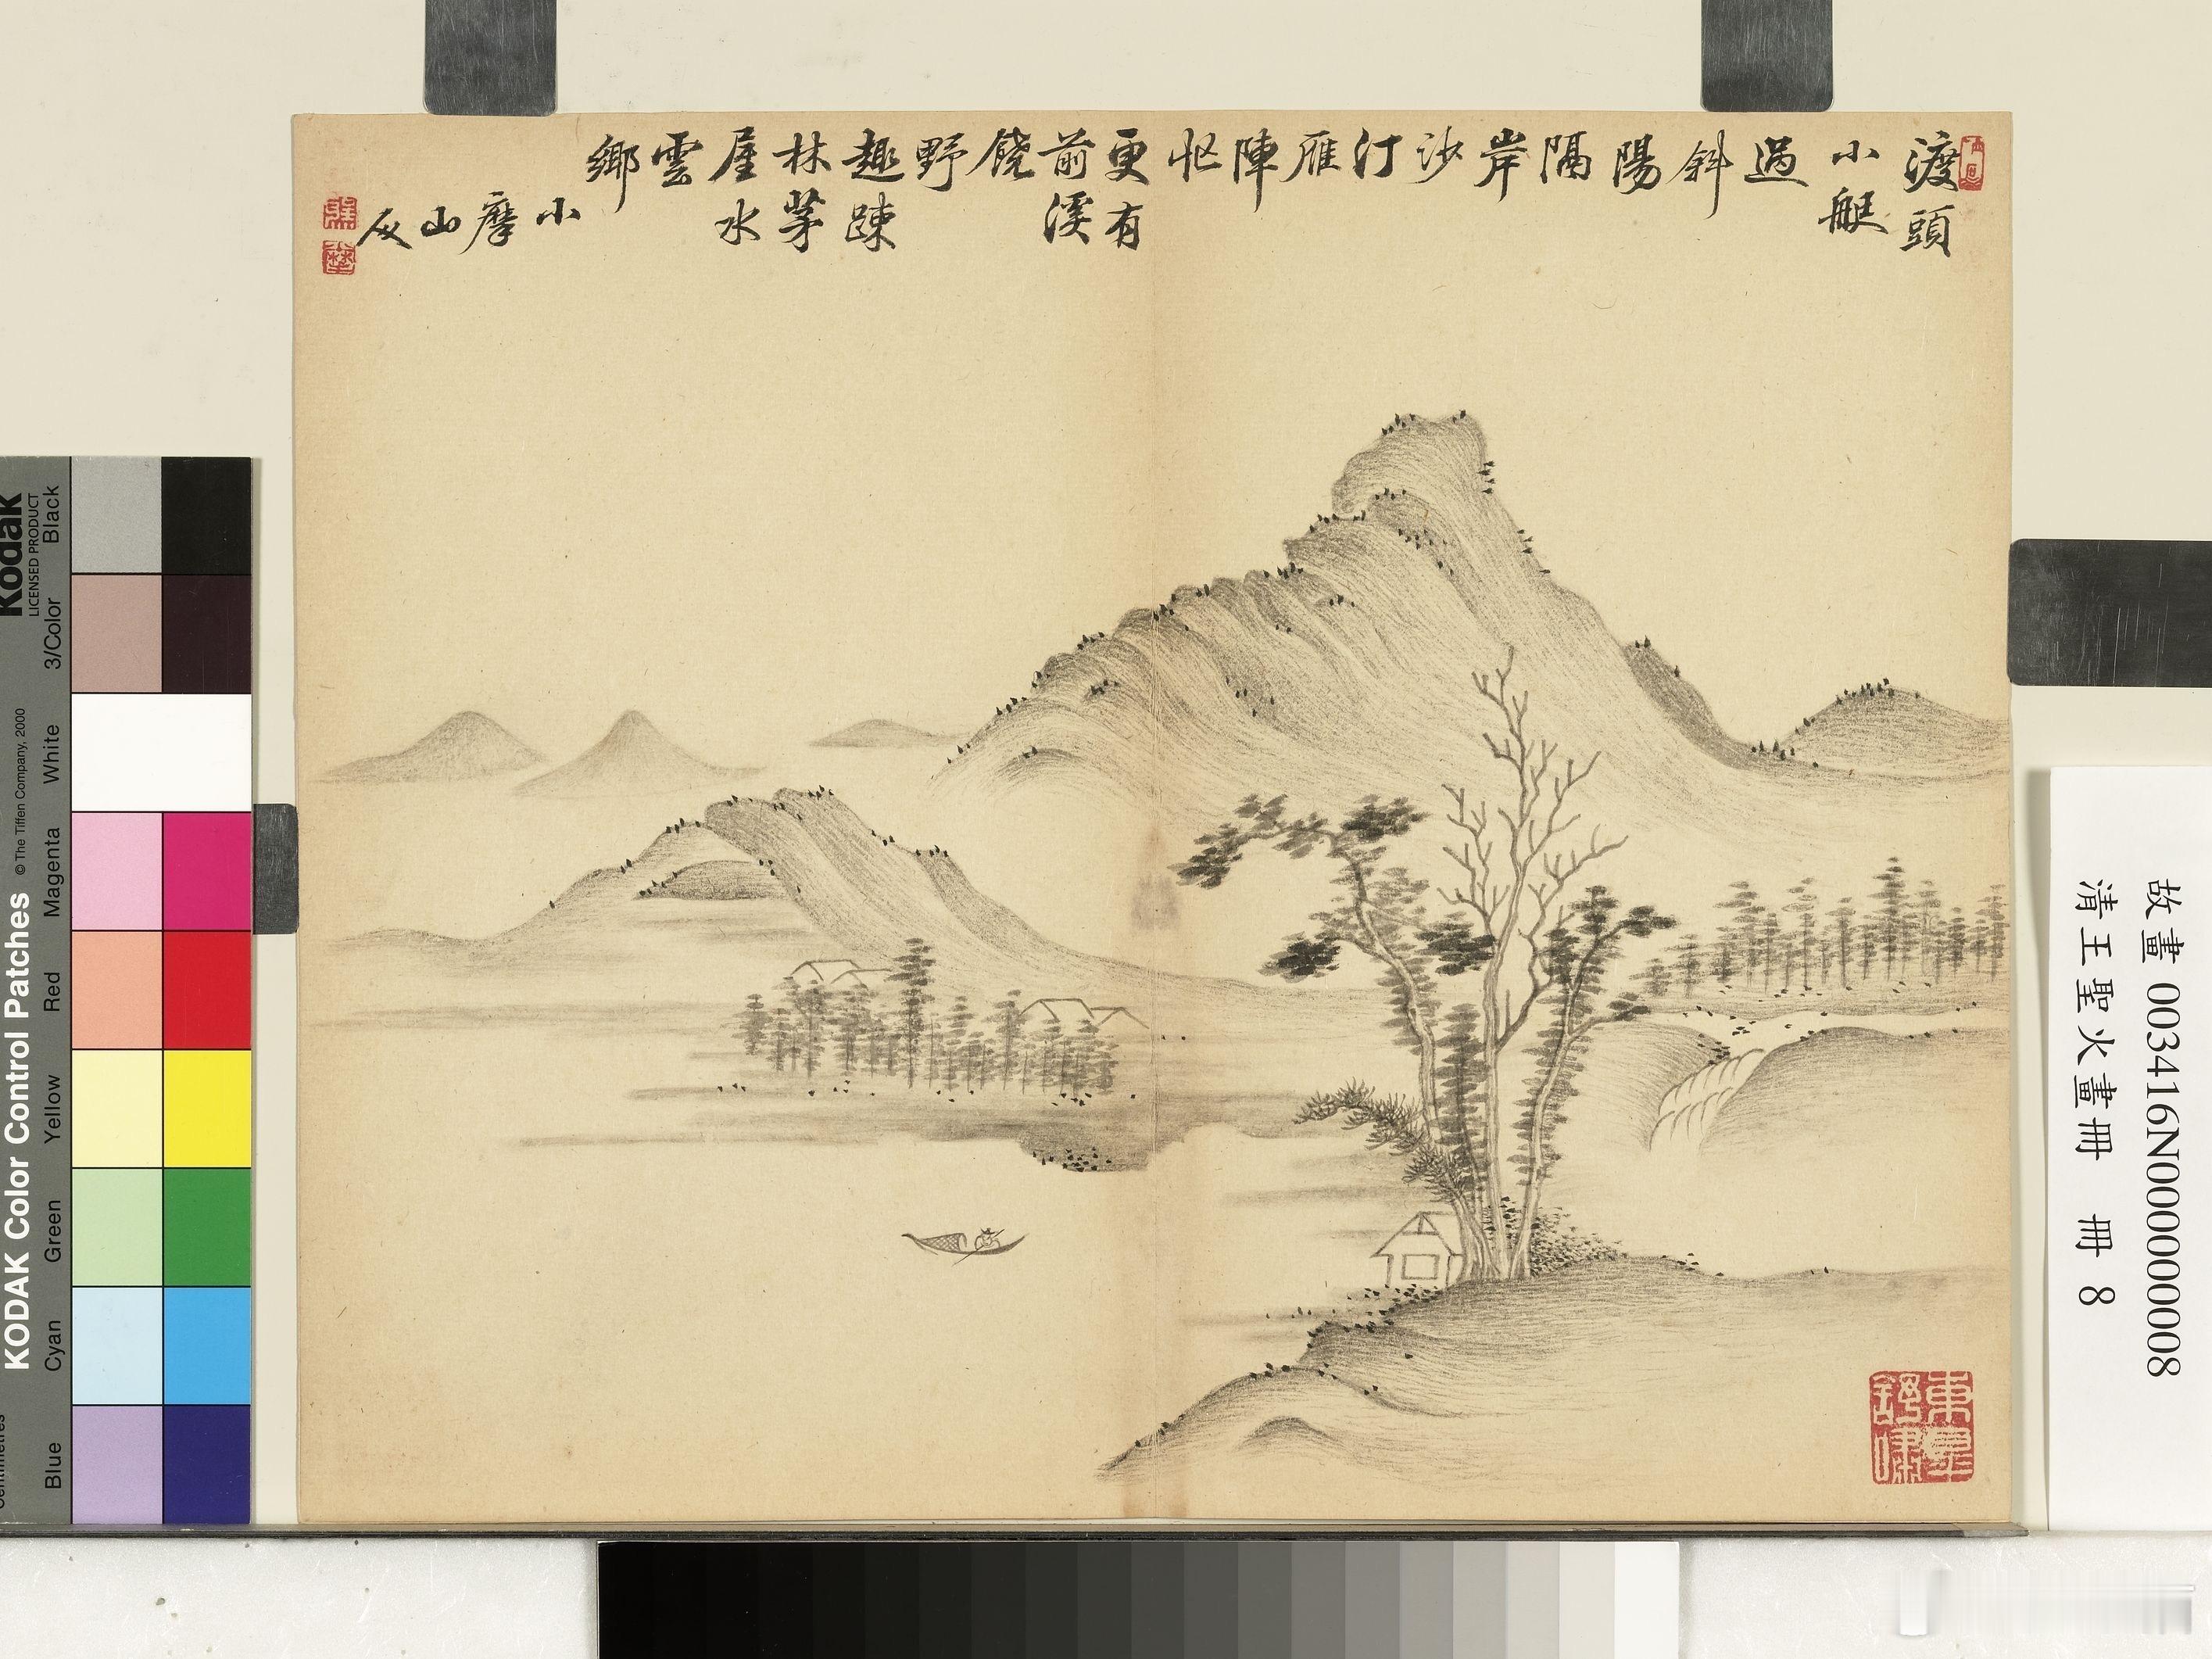 渡頭
小艇
過
斜
陽
隔
岸
沙
汀
雁
陣
忙
更有
前溪
饒
野
趣踈
林茅
屋水
雲
鄉
小
摩
山
東皋
舒嘯
故畫 003416N000000008
清王聖火畫冊 冊 8
Kodak
LICENSED PRODUCT
KODAK Color Control Patches
© The Tiffen Company, 2000
Black
3/Color
White
Magenta
Red
Yellow
Green
Cyan
Blue